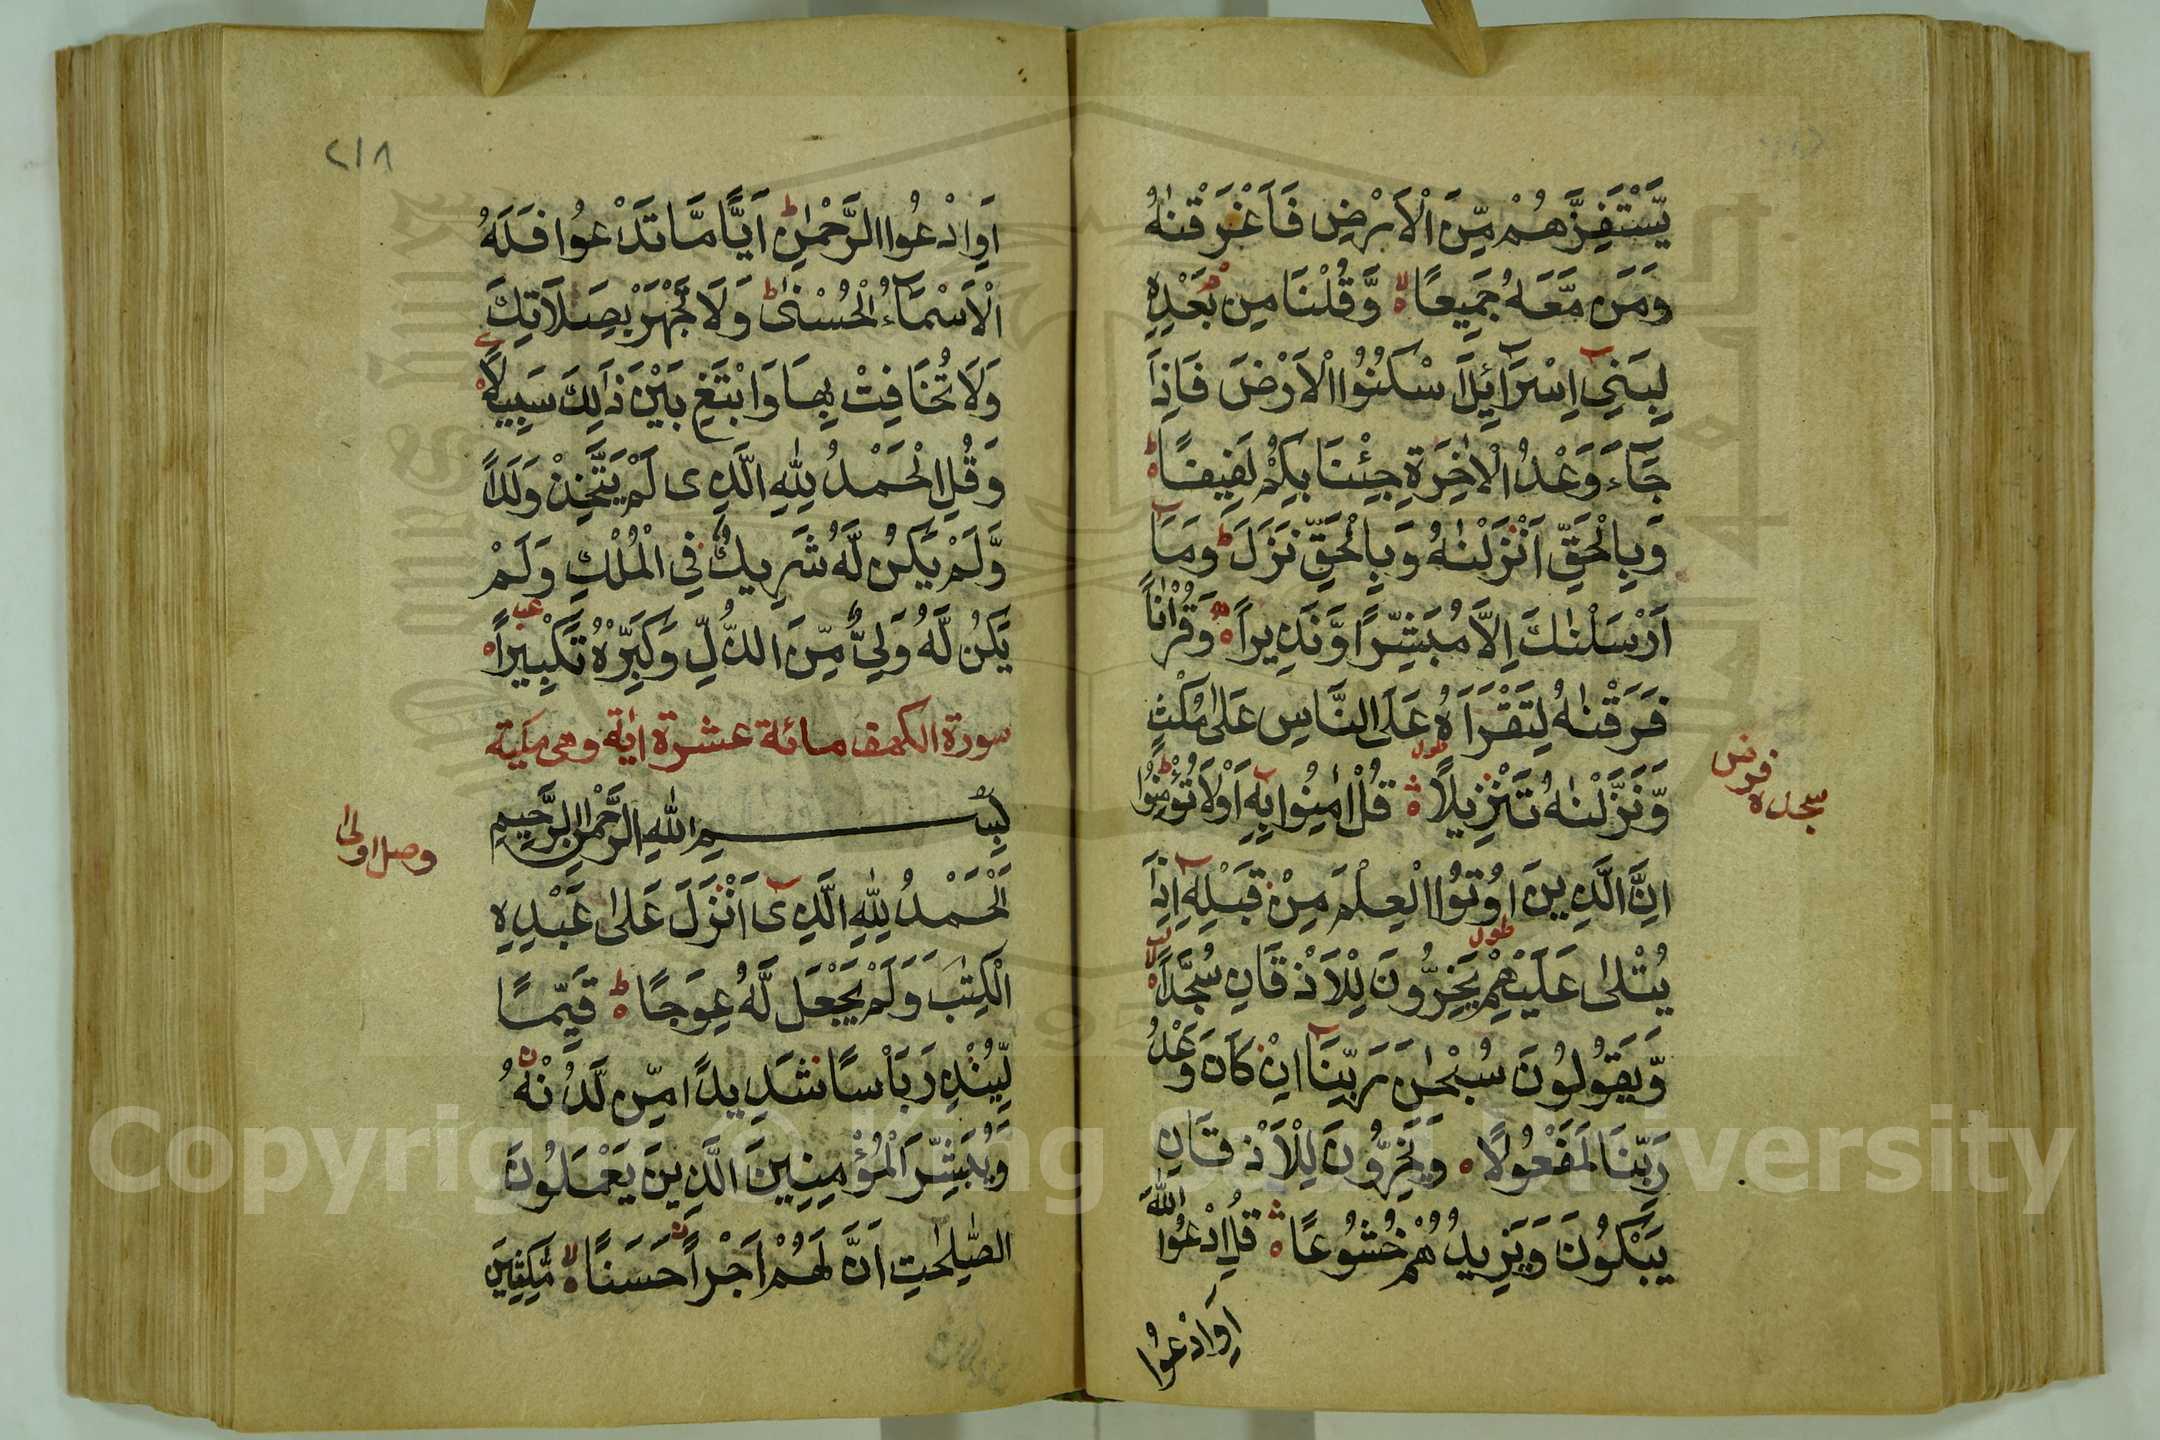 يَّسْتَفِزَّهُمْ مِّنَ الْاَرْضِ فَاَغْرَقْنٰهُ
وَمَنْ مَّعَهُ جَمِيعًا ۙ وَّقُلْنَا مِنْ بَعْدِهِ
لِبَنِىٓ اِسْرَآئِلَ اسْكُنُوا الْاَرْضَ فَاِذَا
جَآءَ وَعْدُ الْاٰخِرَةِ جِئْنَا بِكُمْ لَفِيفًا ؕ
وَبِالْحَقِّ اَنْزَلْنٰهُ وَبِالْحَقِّ نَزَلَ ؕ وَمَآ
اَرْسَلْنٰكَ اِلَّا مُبَشِّرًا وَّنَذِيرًا ۘ وَقُرْاٰنًا
فَرَقْنٰهُ لِتَقْرَاَهُ عَلَى النَّاسِ عَلٰى مُكْثٍ
وَّنَزَّلْنٰهُ تَنْزِيلًا قُلْ اٰمِنُوا بِهِٓ اَوْ لَا تُؤْمِنُوا ؕ
سجدة فرض
اِنَّ الَّذِينَ اُوتُوا الْعِلْمَ مِنْ قَبْلِهِٓ اِذَا
يُتْلٰى عَلَيْهِمْ يَخِرُّونَ لِلْاَذْقَانِ سُجَّدًا ۙ
وَّيَقُولُونَ سُبْحٰنَ رَبِّنَآ اِنْ كَانَ وَعْدُ
رَبِّنَا لَمَفْعُولًا وَيَخِرُّونَ لِلْاَذْقَانِ
يَبْكُونَ وَيَزِيدُهُمْ خُشُوعًا قُلِ ادْعُوا اللّٰهَ
اَوِ ادْعُوا
٢١٨
اَوِ ادْعُوا الرَّحْمٰنَ ؕ اَيًّا مَّا تَدْعُوا فَلَهُ
الْاَسْمَآءُ الْحُسْنٰى ؕ وَلَا تَجْهَرْ بِصَلَاتِكَ
وَلَا تُخَافِتْ بِهَا وَابْتَغِ بَيْنَ ذٰلِكَ سَبِيلًا
وَقُلِ الْحَمْدُ لِلّٰهِ الَّذِى لَمْ يَتَّخِذْ وَلَدًا
وَّلَمْ يَكُنْ لَّهُ شَرِيكٌ فِى الْمُلْكِ وَلَمْ
يَكُنْ لَّهُ وَلِىٌّ مِّنَ الذُّلِّ وَكَبِّرْهُ تَكْبِيرًا
سورة الكهف مائة عشرة اٰية وهى مكية
بِسْمِ اللّٰهِ الرَّحْمٰنِ الرَّحِيمِ
وصل اولى
اَلْحَمْدُ لِلّٰهِ الَّذِىٓ اَنْزَلَ عَلٰى عَبْدِهِ
الْكِتٰبَ وَلَمْ يَجْعَلْ لَّهُ عِوَجًا ؕ قَيِّمًا
لِّيُنْذِرَ بَاْسًا شَدِيدًا مِّنْ لَّدُنْهُ
وَيُبَشِّرَ الْمُؤْمِنِينَ الَّذِينَ يَعْمَلُونَ
الصّٰلِحٰتِ اَنَّ لَهُمْ اَجْرًا حَسَنًا ۙ مَّكِثِينَ
Copyright © King Saud University